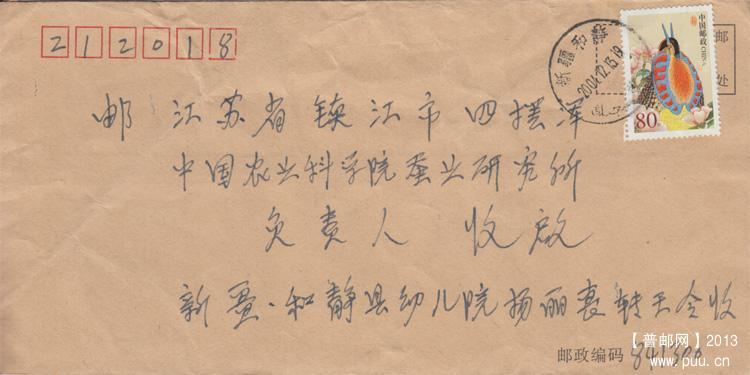 212018
中国邮政 CHINA
80
新疆和静
2004.12.13.19
邮
处
邮 江苏省镇江市四摆渡
中国农业科学院蚕业研究所
负责人 收启
新疆·和静县幼儿院杨丽丧转王令收
邮政编码 841300
【普邮网】2013
www.puu.cn